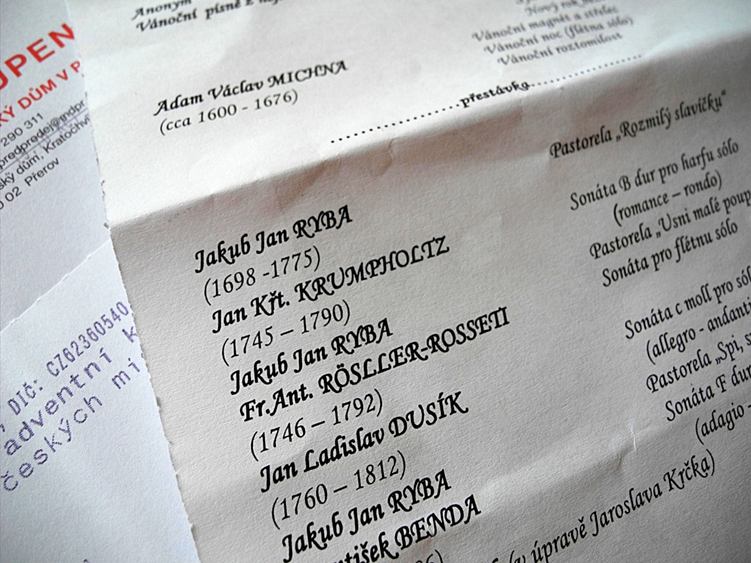 UPEN
KÝ DŮM V P
290 311
predprodej@
ský dům, Kratochví
02 Přerov
DIČ: CZ62360540
adventní k
českých mi
Anonym
Vánoční písně z
Nový rok
Vánoční magnét a střelec
Vánoční noc (flétna sólo)
Vánoční roztomilost
Adam Václav MICHNA
(cca 1600 - 1676)
přestávka
Pastorela „Rozmilý slavíčku"
Jakub Jan RYBA
(1698 -1775)
Sonáta B dur pro harfu sólo
(romance – rondo)
Jan Křt. KRUMPHOLTZ
(1745 – 1790)
Pastorela „Usni malé poup
Jakub Jan RYBA
Sonáta pro flétnu sólo
Fr.Ant. RÖSLLER-ROSSETI
(1746 – 1792)
Sonáta c moll pro só
(allegro - andant
Jan Ladislav DUSÍK
(1760 – 1812)
Pastorela „Spi, s
Jakub Jan RYBA
Sonáta F dur
(adagio -
ntišek BENDA
(v úpravě Jaroslava Krčka)